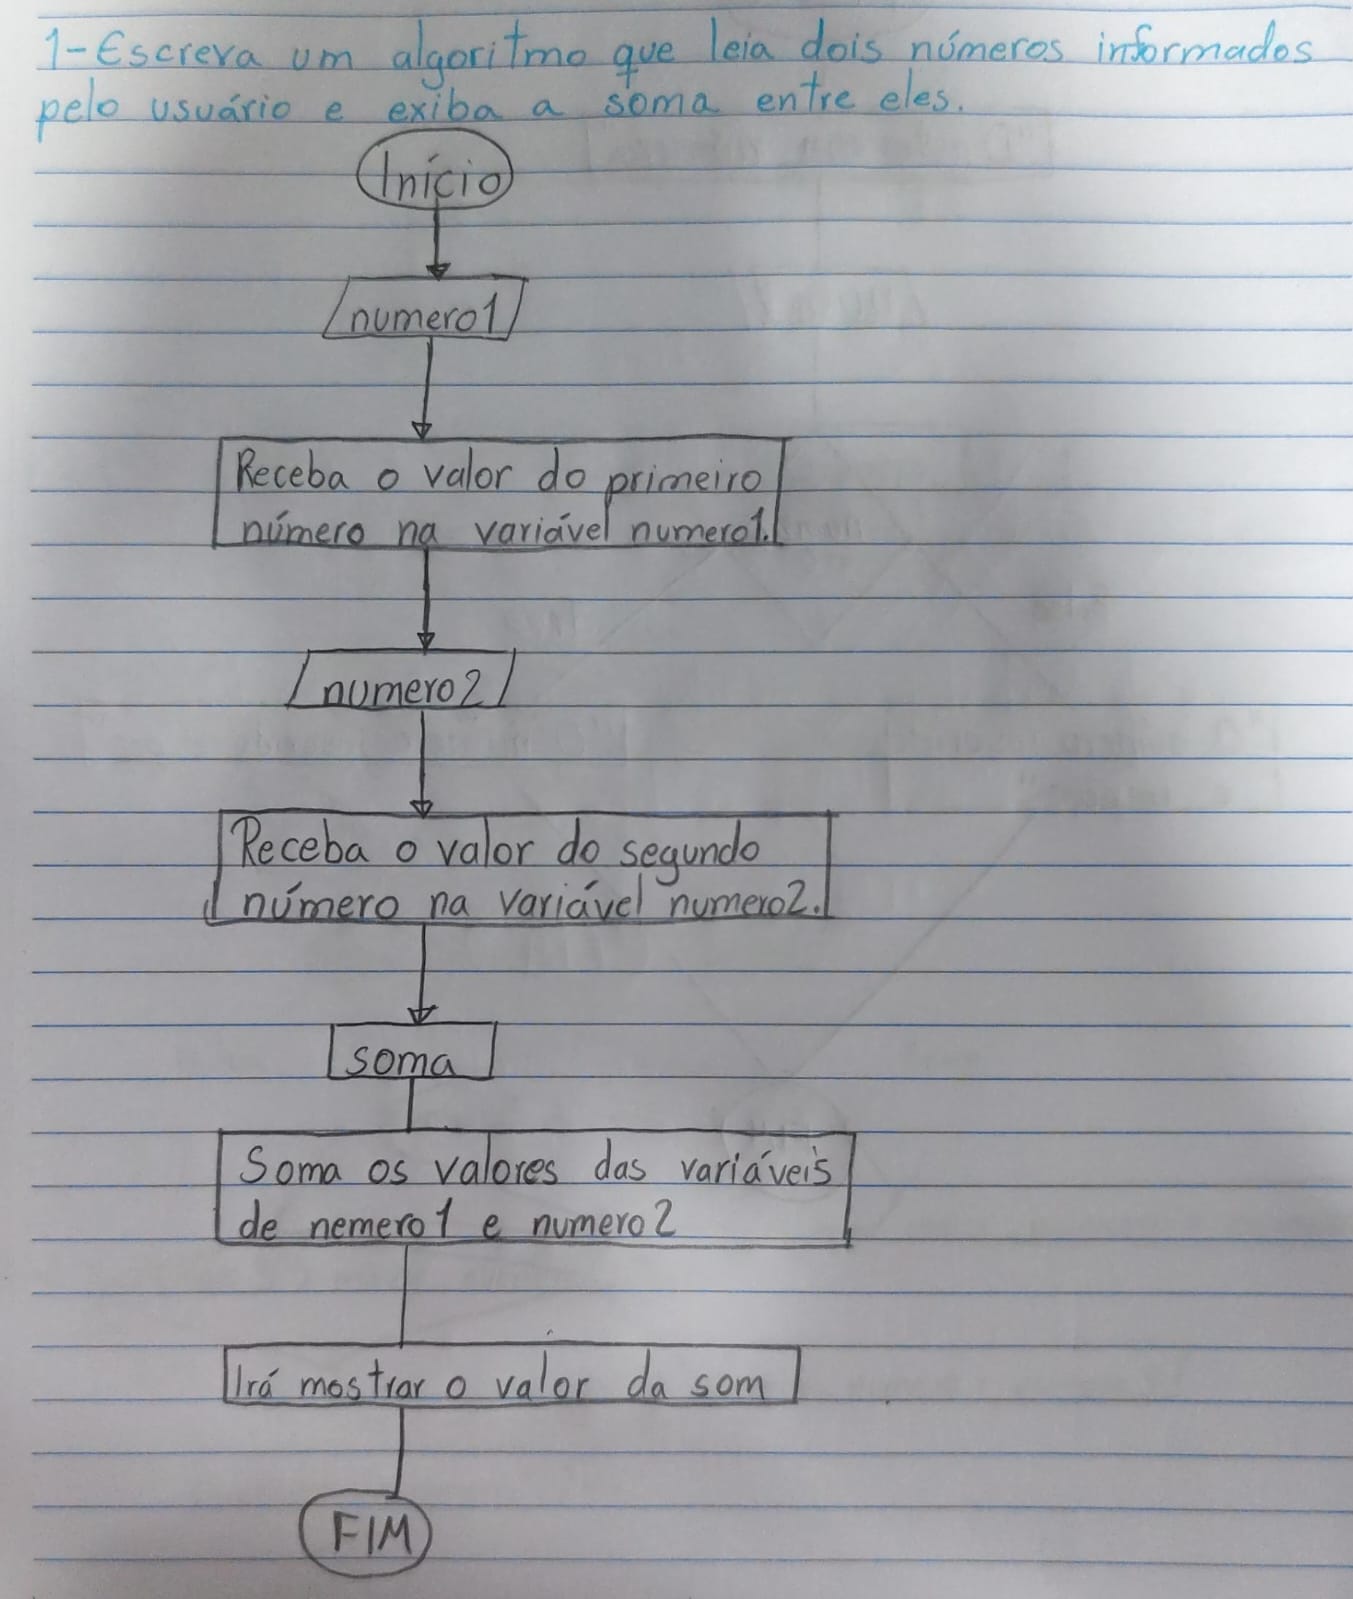 1-Escreva um algoritmo que leia dois números informados
pelo usuário e exiba a soma entre eles.
Início
numero1
Receba o valor do primeiro
número na variável numero1.
numero2
Receba o valor do segundo
número na variável numero2.
soma
Soma os valores das variáveis
de nemero1 e numero2
Irá mostrar o valor da som
FIM